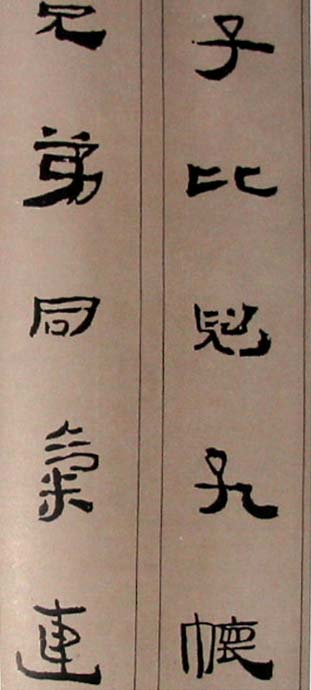 子比兒孔懷
兄弟同氣連